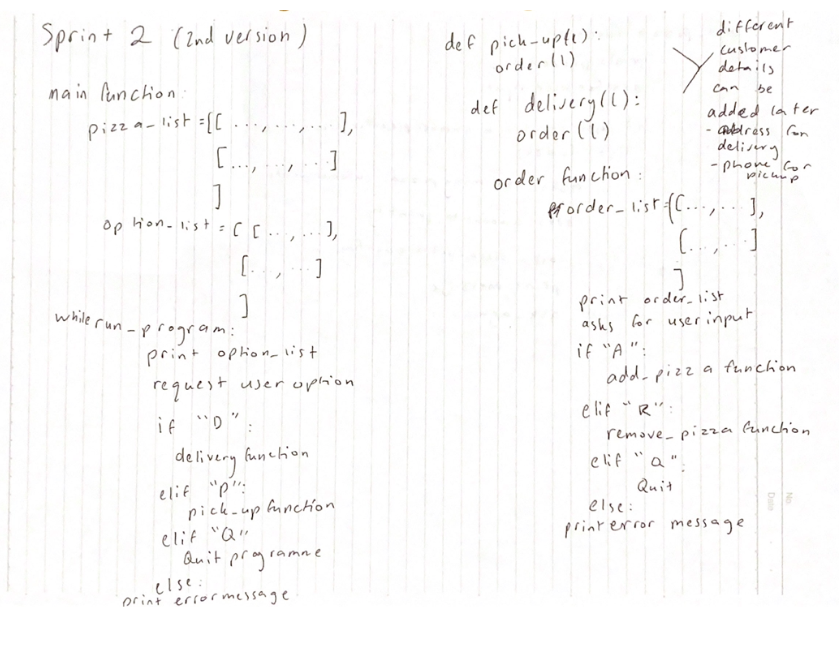 Sprint 2 (2nd version)
main function:
pizza_list =[[ ..., ..., ... ],
[..., ..., ...]
]
option_list = [ [ ..., ...],
[..., ...]
]
while run_program:
print option_list
request user option
if "D":
delivery function
elif "P":
pick_up function
elif "Q"
Quit programme
else:
print error message
def pick_up(l):
order(l)
def delivery(l):
order(l)
different
customer
details
can be
added later
- address for
delivery
- phone for
pickup
order function:
order_list=[[..., ...],
[..., ...]
]
print order_list
asks for user input
if "A":
add_pizza function
elif "R":
remove_pizza function
elif "Q":
Quit
else:
print error message
No
Date